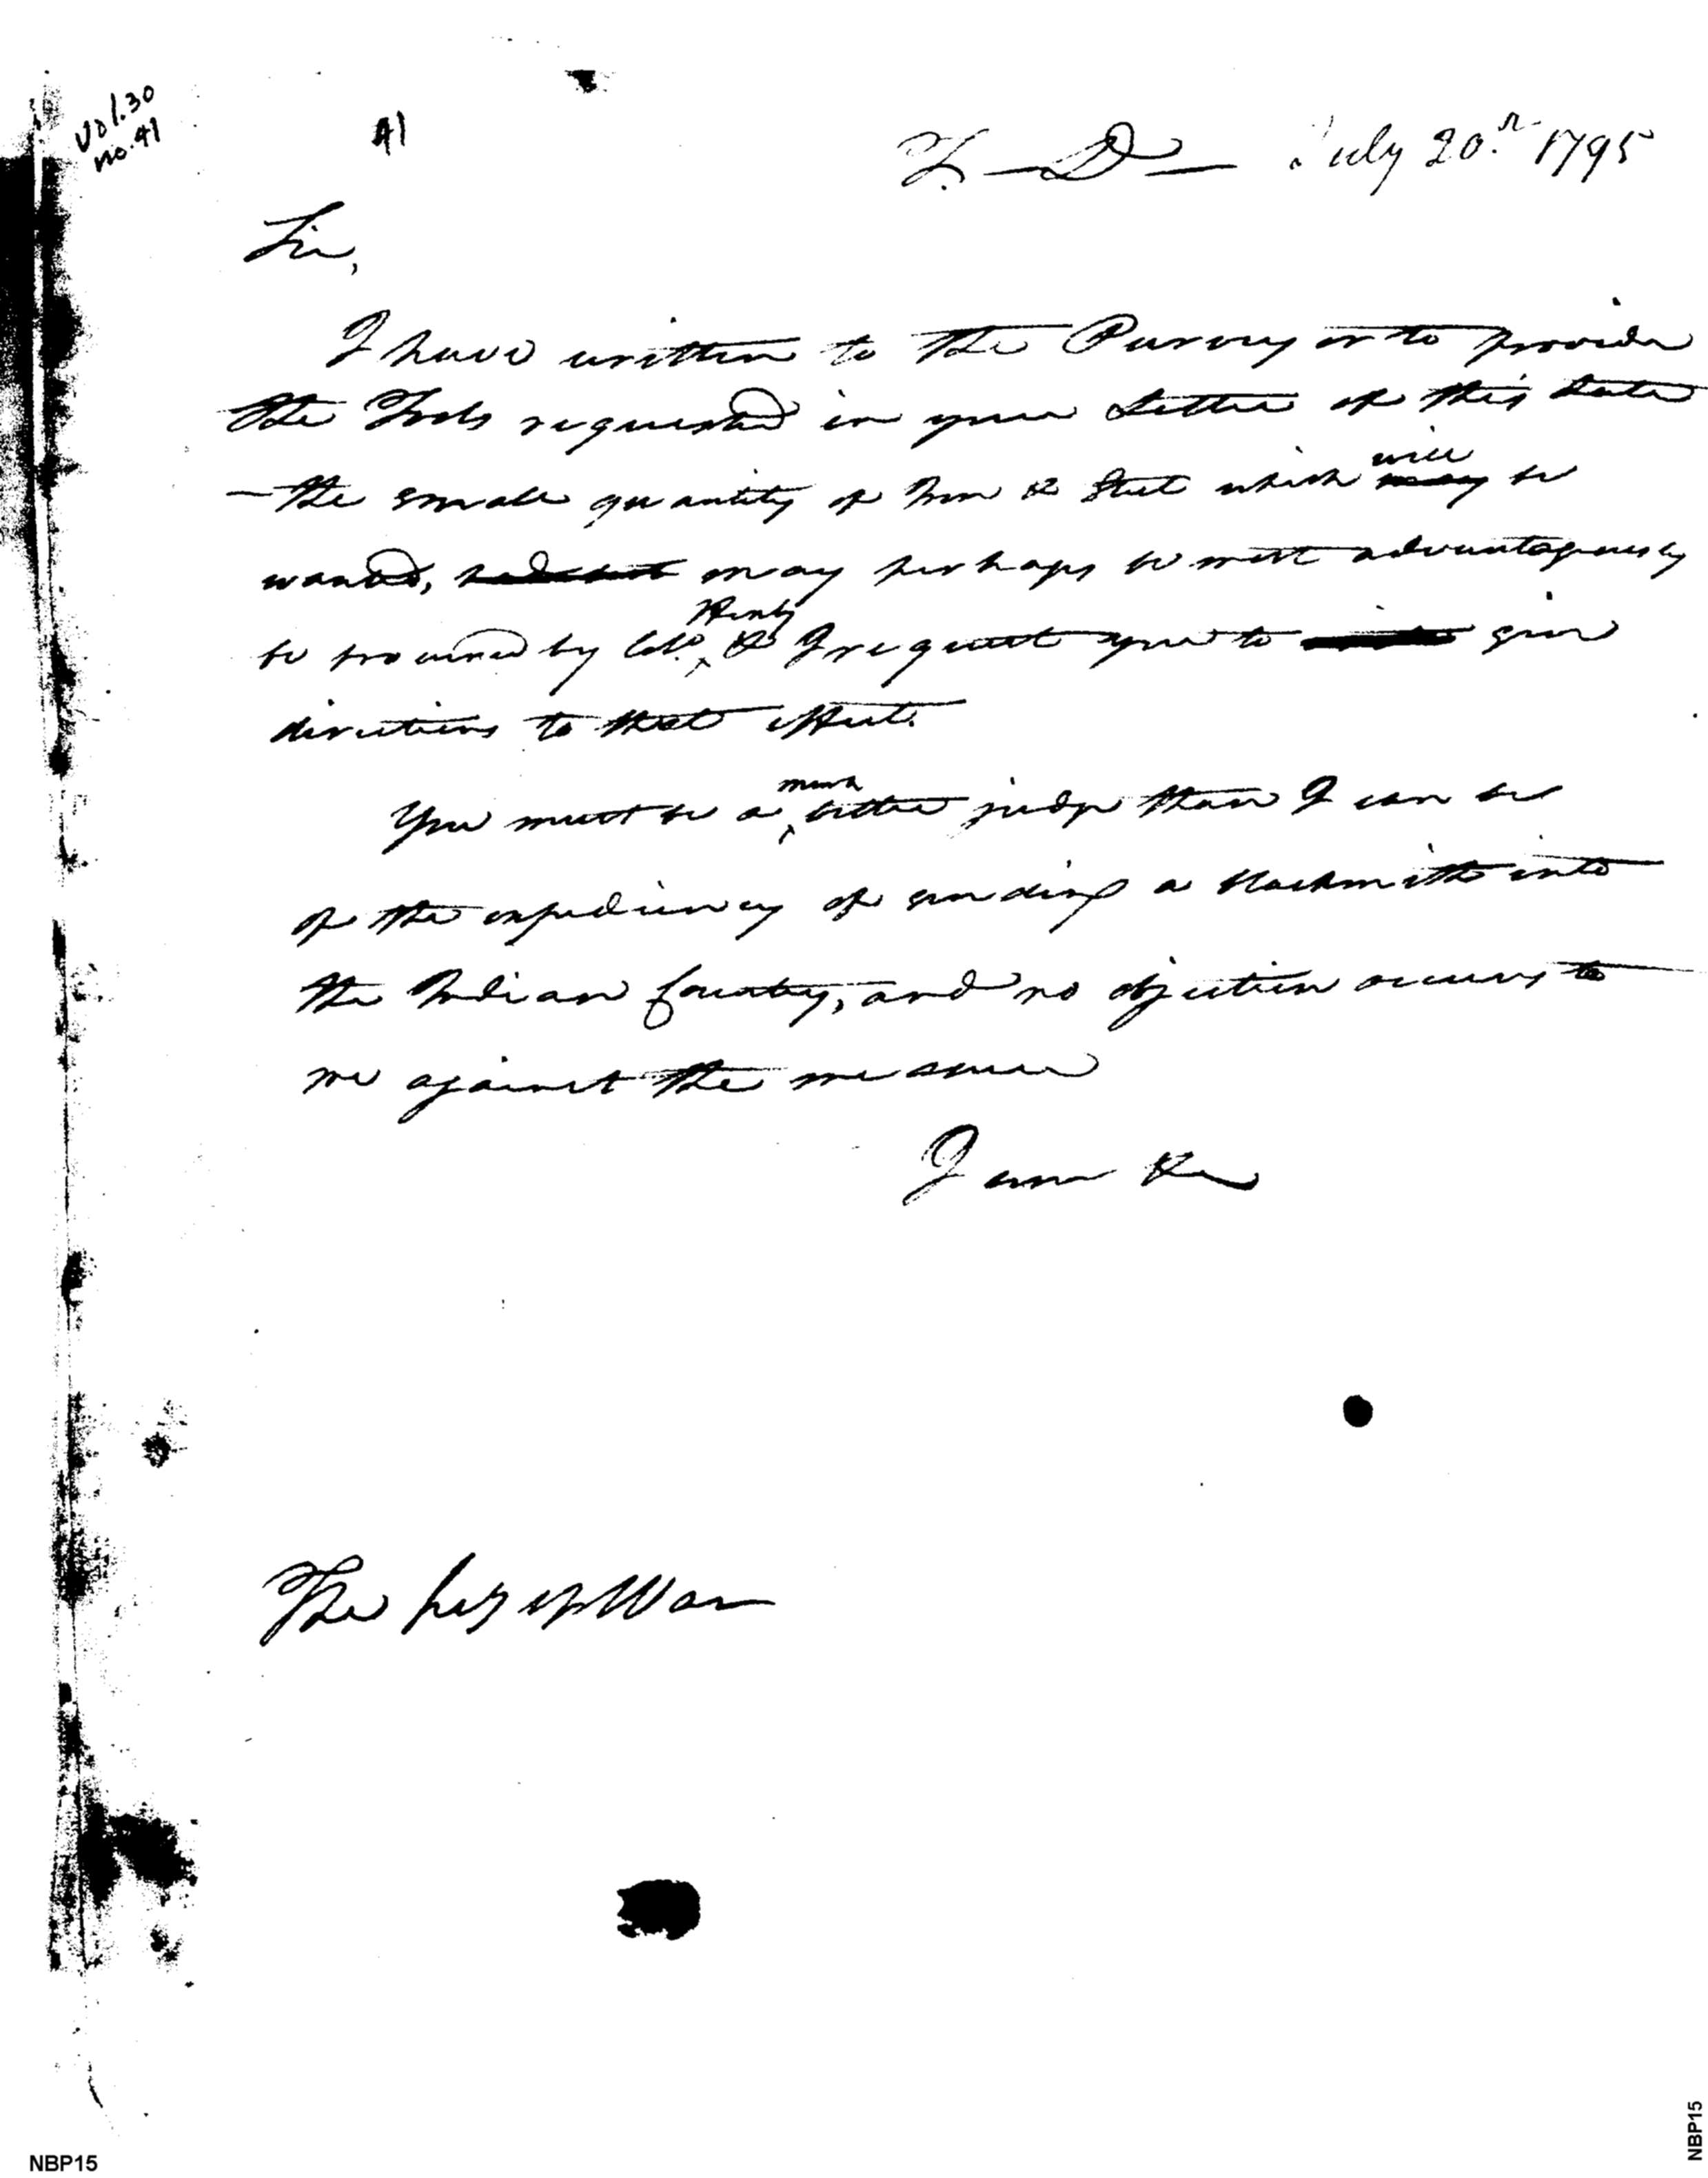 Vol.30
no.41
41
T. — D — July 20th 1795
Sir,
I have written to the Purveyor to provide
the Tools requested in your Letter of this date
— the small quantity of Iron & Steel which will be
wanted, may perhaps be most advantageously
be procured by Colo. Henly & I request you to give
directions to that effect.
You must be a much better judge than I can be
of the expediency of sending a blacksmith into
the Indian Country, and no objection occurs to
me against the measure
I am &c
The Secy of War
NBP15
NBP15